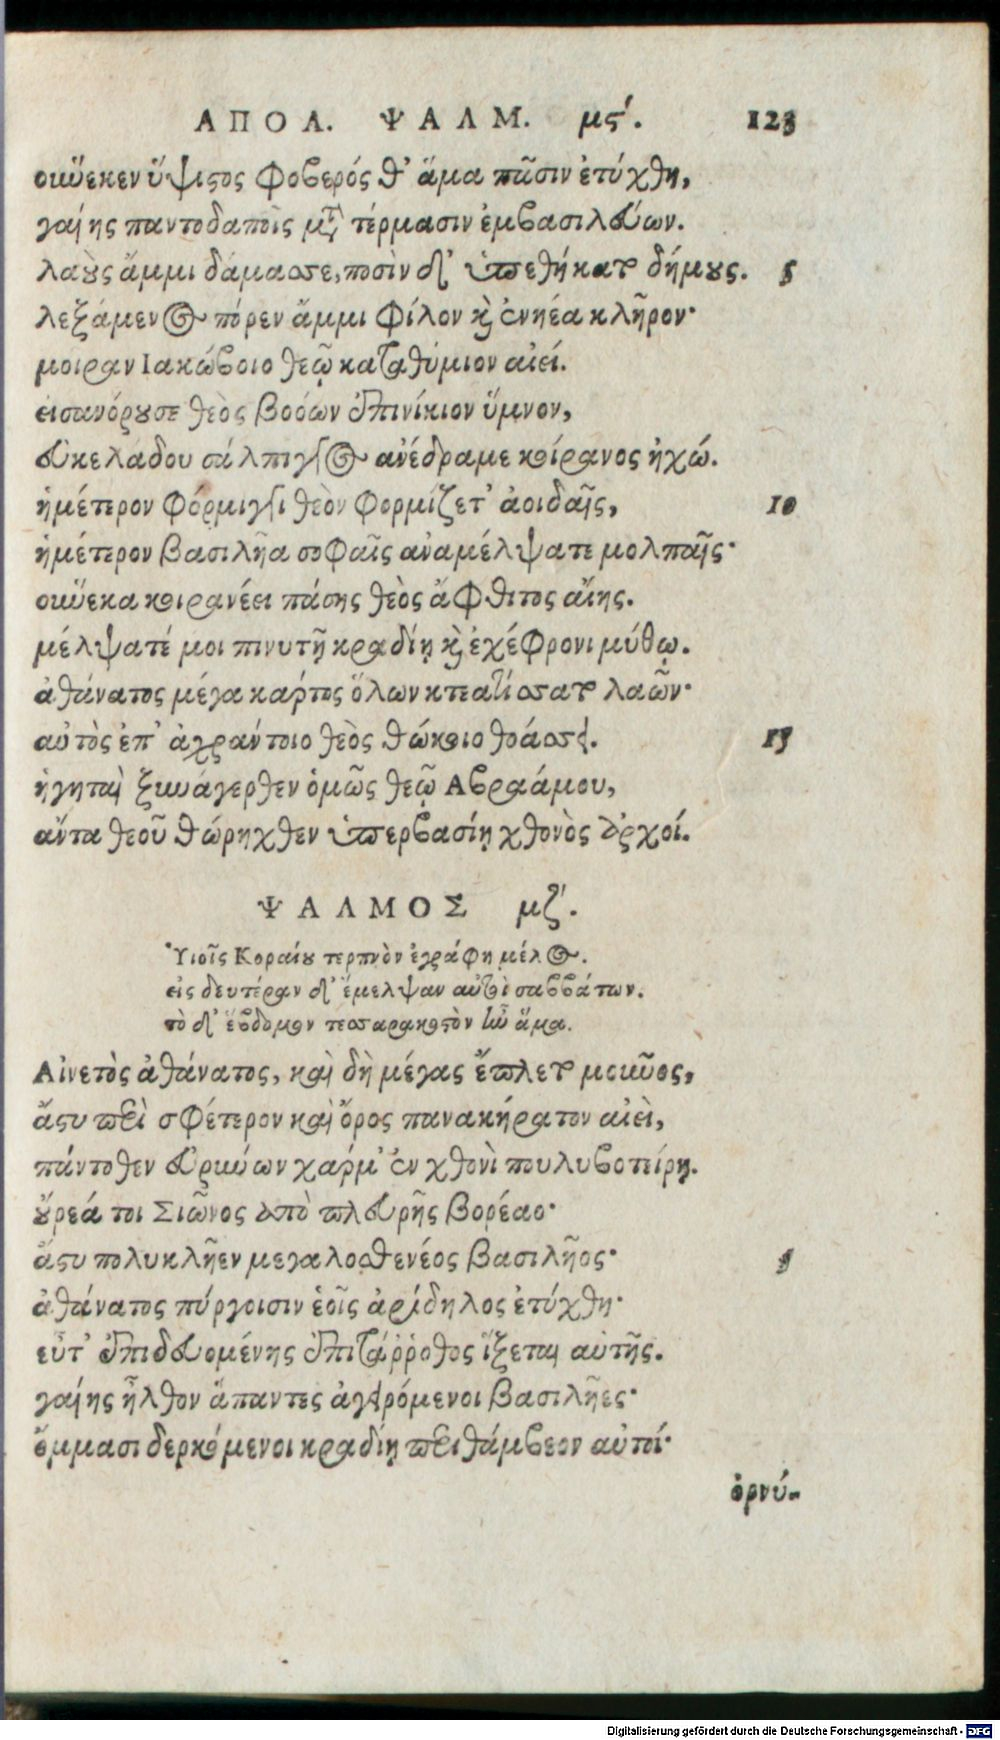 ΑΠΟΛ. ΨΑΛΜ. μϛ΄. 123
οὕνεκεν ὕψιστος φοβερός θ' ἅμα πᾶσιν ἐτύχθη,
γαίης παντοδαποῖς μετὰ τέρμασιν ἐμβασιλεύων.
λαοὺς ἄμμι δάμασσε, ποσὶν δ' ὑπεθήκατο δήμους. 5
λεξάμενος πόρεν ἄμμι φίλον καὶ ἐνηέα κλῆρον·
μοιραν Ιακώβοιο θεῷ καταθύμιον αἰεί.
εἰσανόρουσε θεὸς βοόων ἐπινίκιον ὕμνον,
εὐκελάδου σάλπιγγος ἀνέδραμε κοίρανος ἠχώ.
ἡμέτερον φόρμιγγι θεὸν φορμίζετ' ἀοιδαῖς, 10
ἡμέτερον βασιλῆα σοφαῖς ἀναμέλψατε μολπαῖς·
οὕνεκα κοιρανέει πάσης θεὸς ἄφθιτος αἴης.
μέλψατέ μοι πινυτῇ κραδίῃ καὶ ἐχέφρονι μύθῳ.
ἀθάνατος μέγα κάρτος ὅλων κτεατίσσατο λαῶν·
αὐτὸς ἐπ' ἀχράντοιο θεὸς θώκοιο θοάσσει. 15
ἡγηταὶ ξυνάγερθεν ὁμῶς θεῷ Αβραάμου,
ἄντα θεοῦ θώρηχθεν ὑπερβασίῃ χθονὸς ἀρχοί.
ΨΑΛΜΟΣ μζ΄.
Ὑιοῖς Κοραίου τερπνὸν ἐγράφη μέλος.
εἰς δευτέραν δ' ἔμελψαν αὐτὸ σαββάτων.
τὸ δ' ἕβδομον τεσσαρακοστὸν ἦν ἅμα.
Αἰνετὸς ἀθάνατος, καὶ δὴ μέγας ἔπλετο μοῦνος,
ἄστυ περὶ σφέτερον καὶ ὄρος πανακήρατον αἰεὶ,
πάντοθεν εὐρύνων χάρμ' ἐν χθονὶ πουλυβοτείρῃ.
οὔρεά τοι Σιῶνος ἀπὸ πλευρῆς βορέαο·
ἄστυ πολυκλῆεν μεγαλοσθενέος βασιλῆος· 5
ἀθάνατος πύργοισιν ἑοῖς ἀρίδηλος ἐτύχθη·
εὖτ' ἐπιδευομένης ἐπιτάῤῥοθος ἵξεται αὐτῆς.
γαίης ἦλθον ἅπαντες ἀγειρόμενοι βασιλῆες·
ὄμμασι δερκόμενοι κραδίῃ περιθάμβεον αὐτοί·
ὀρνύ-
Digitalisierung gefördert durch die Deutsche Forschungsgemeinschaft - DFG